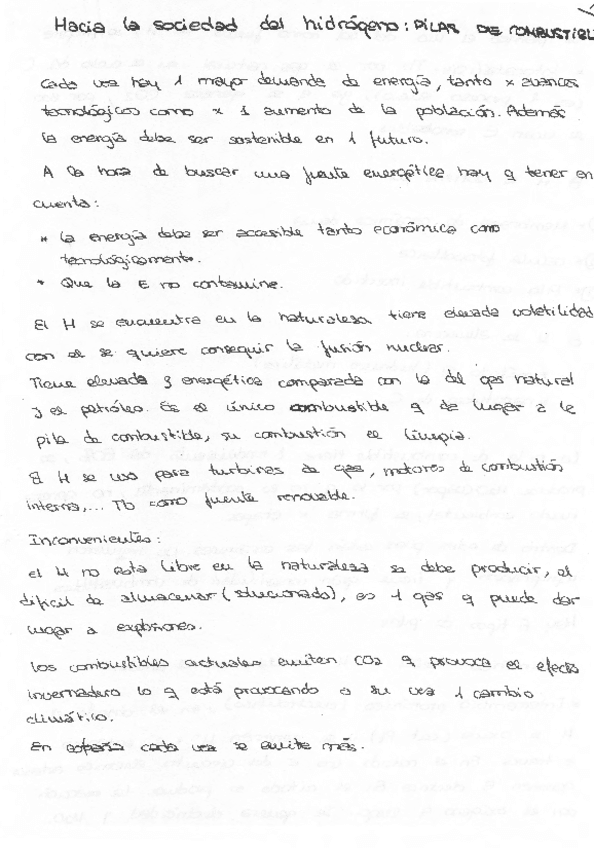 Hacia la sociedad del hidrógeno: PILAR DE COMBUSTIBL
Cada vez hay 1 mayor demanda de energía, tanto x avances
tecnológicos como x 1 aumento de la población. Además
la energía debe ser sostenible en 1 futuro.
A la hora de buscar una fuente energética hay q tener en
cuenta:
* La energía debe ser accesible tanto económica como
tecnológicamente.
* Que la E no contamine.
El H se encuentra en la naturaleza tiene elevada volatilidad
con el se quiere conseguir la fusión nuclear.
Tiene elevada energética comparada con la del gas natural
y el petróleo. Es el único combustible q da lugar a la
pila de combustible, su combustión es limpia.
El H se usa para turbinas de gas, motores de combustión
interna,... Tb como fuente renovable.
Inconvenientes:
el H no esta libre en la naturaleza se debe producir, el
dificil de almacenar (solucionado), es 1 gas q puede dar
lugar a explosiones.
Los combustibles actuales emiten CO2 q provoca el efecto
invernadero lo q está provocando a su vez 1 cambio
climático.
En españa cada vez se emite más.